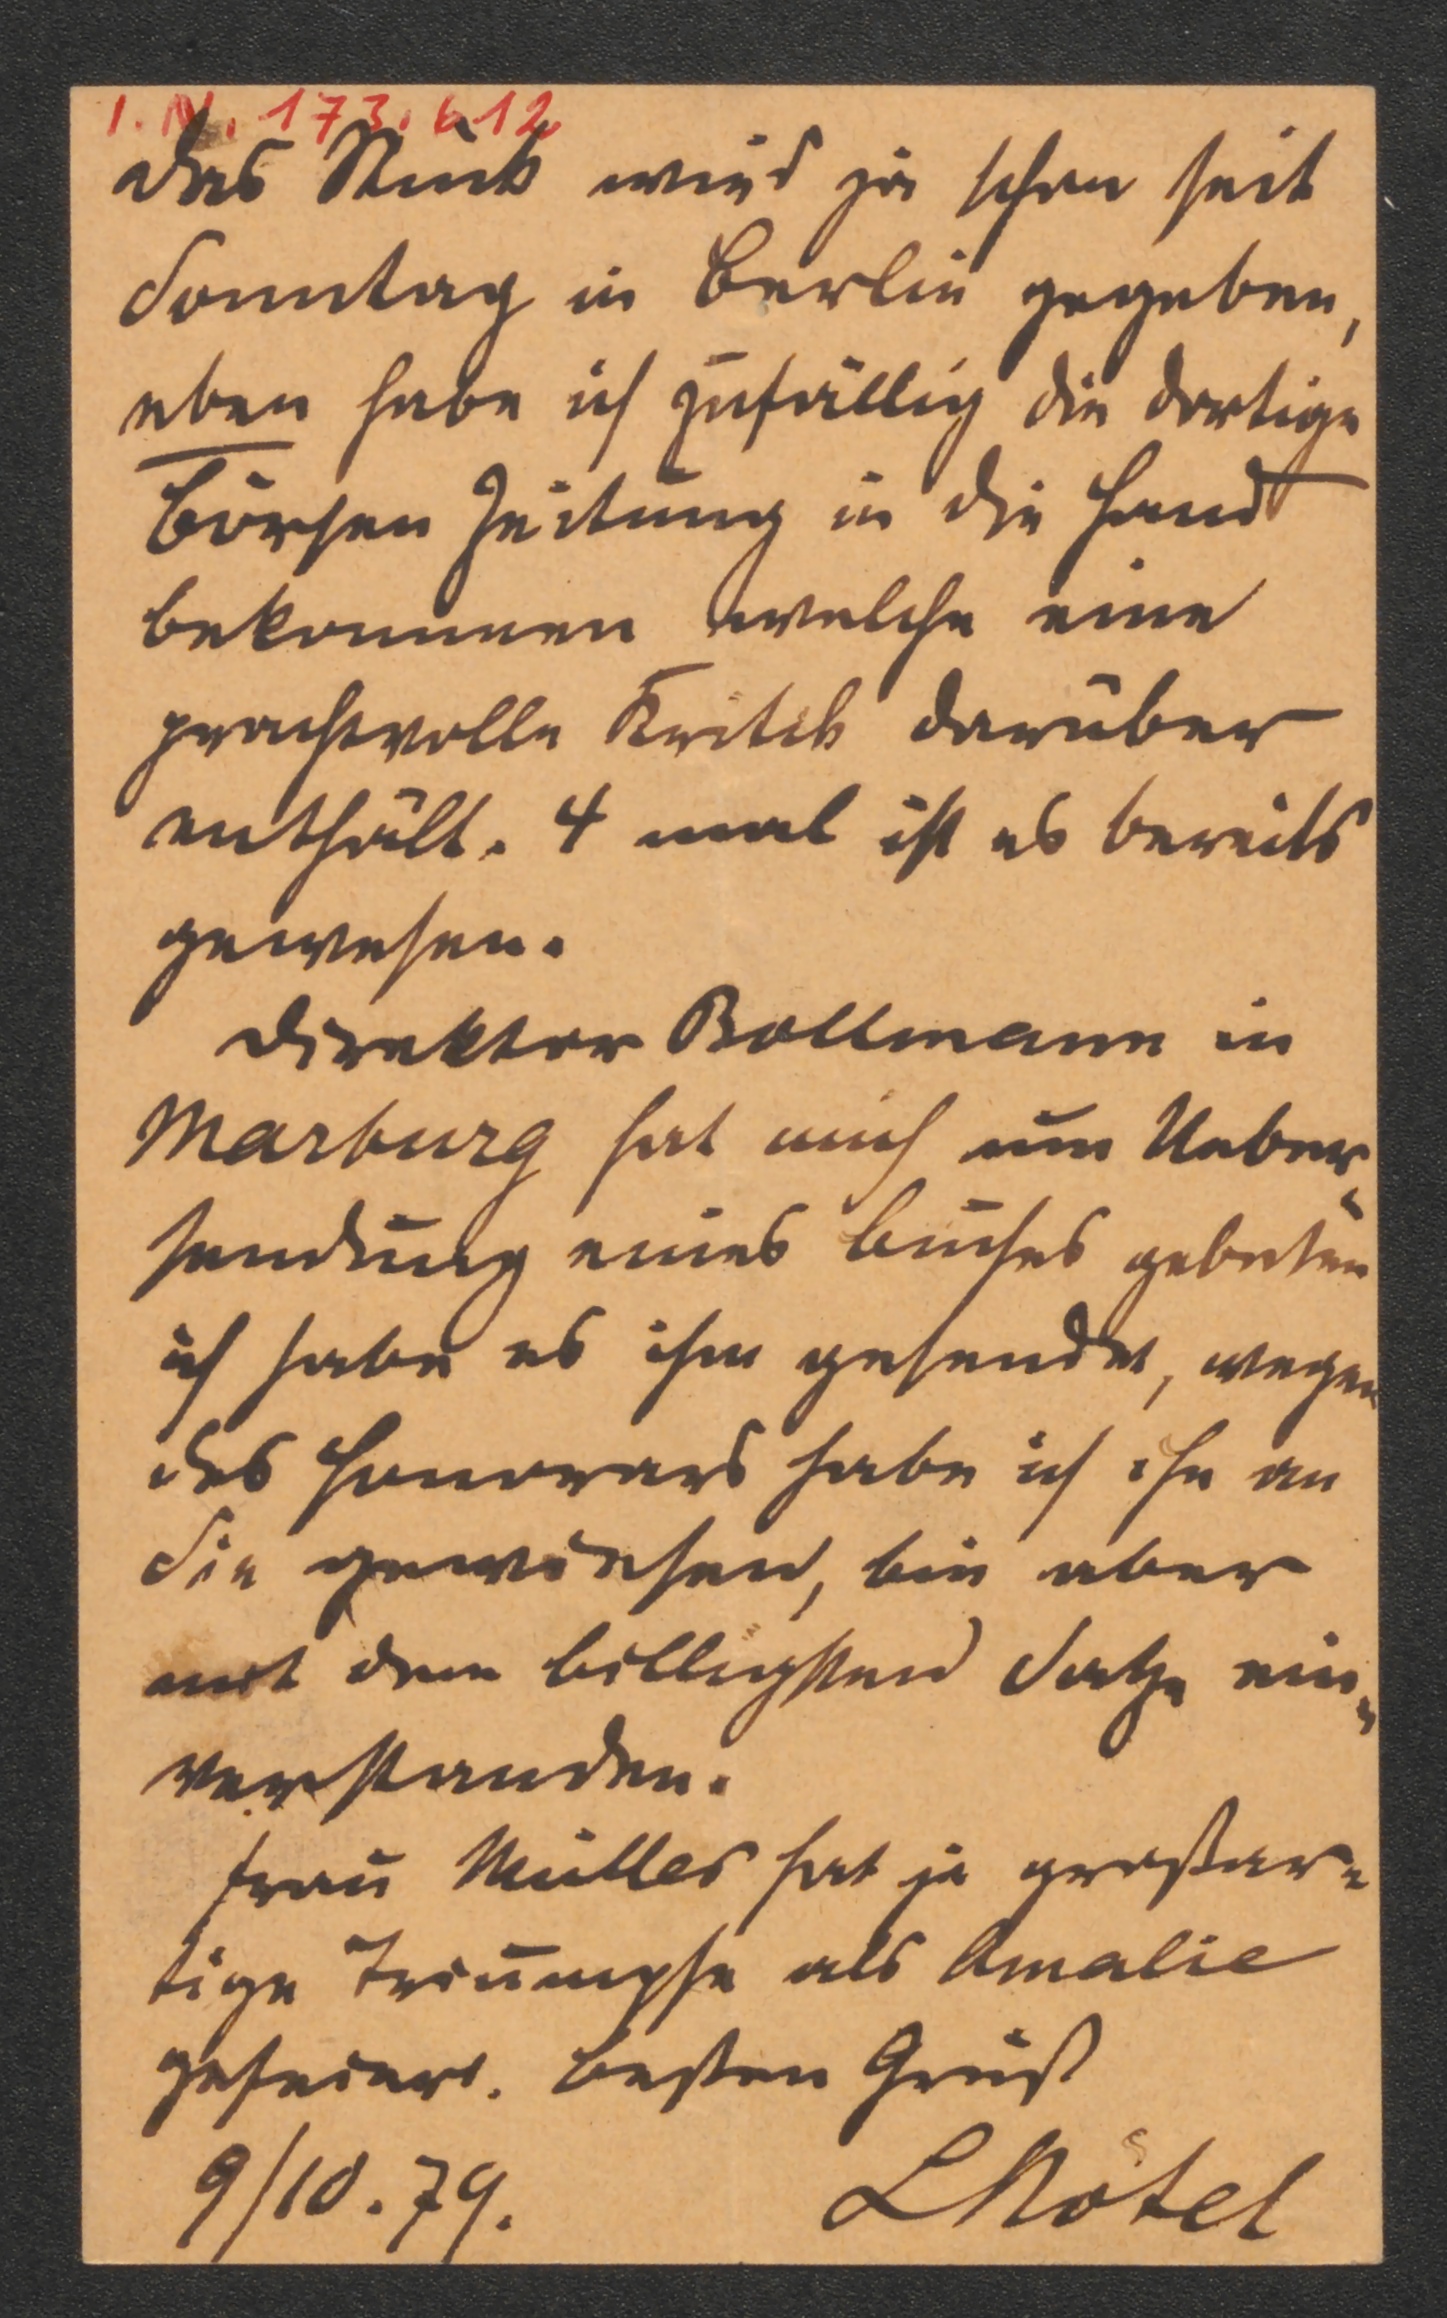 I.N. 173.612
Das Stück wird ja schon seit
Sonntag in Berlin gegeben,
eben habe ich zufällig die dortige
Börsen Zeitung in die Hand
bekommen welche eine
prachtvolle Kritik darüber
enthält. 4 mal ist es bereits
gewesen.
Direktor Bollmann in
Marburg hat mich um Ueber-
sendung eines Buches gebeten
ich habe es ihm gesendet, wegen
des Honorars habe ich ihn an
Sie gewiesen, bin aber
mit dem billigsten Satze ein-
verstanden.
Frau Müller hat ja großar-
tige Triumpfe als Amalie
gefeiert. Besten Gruß
9/10. 79. LNötel